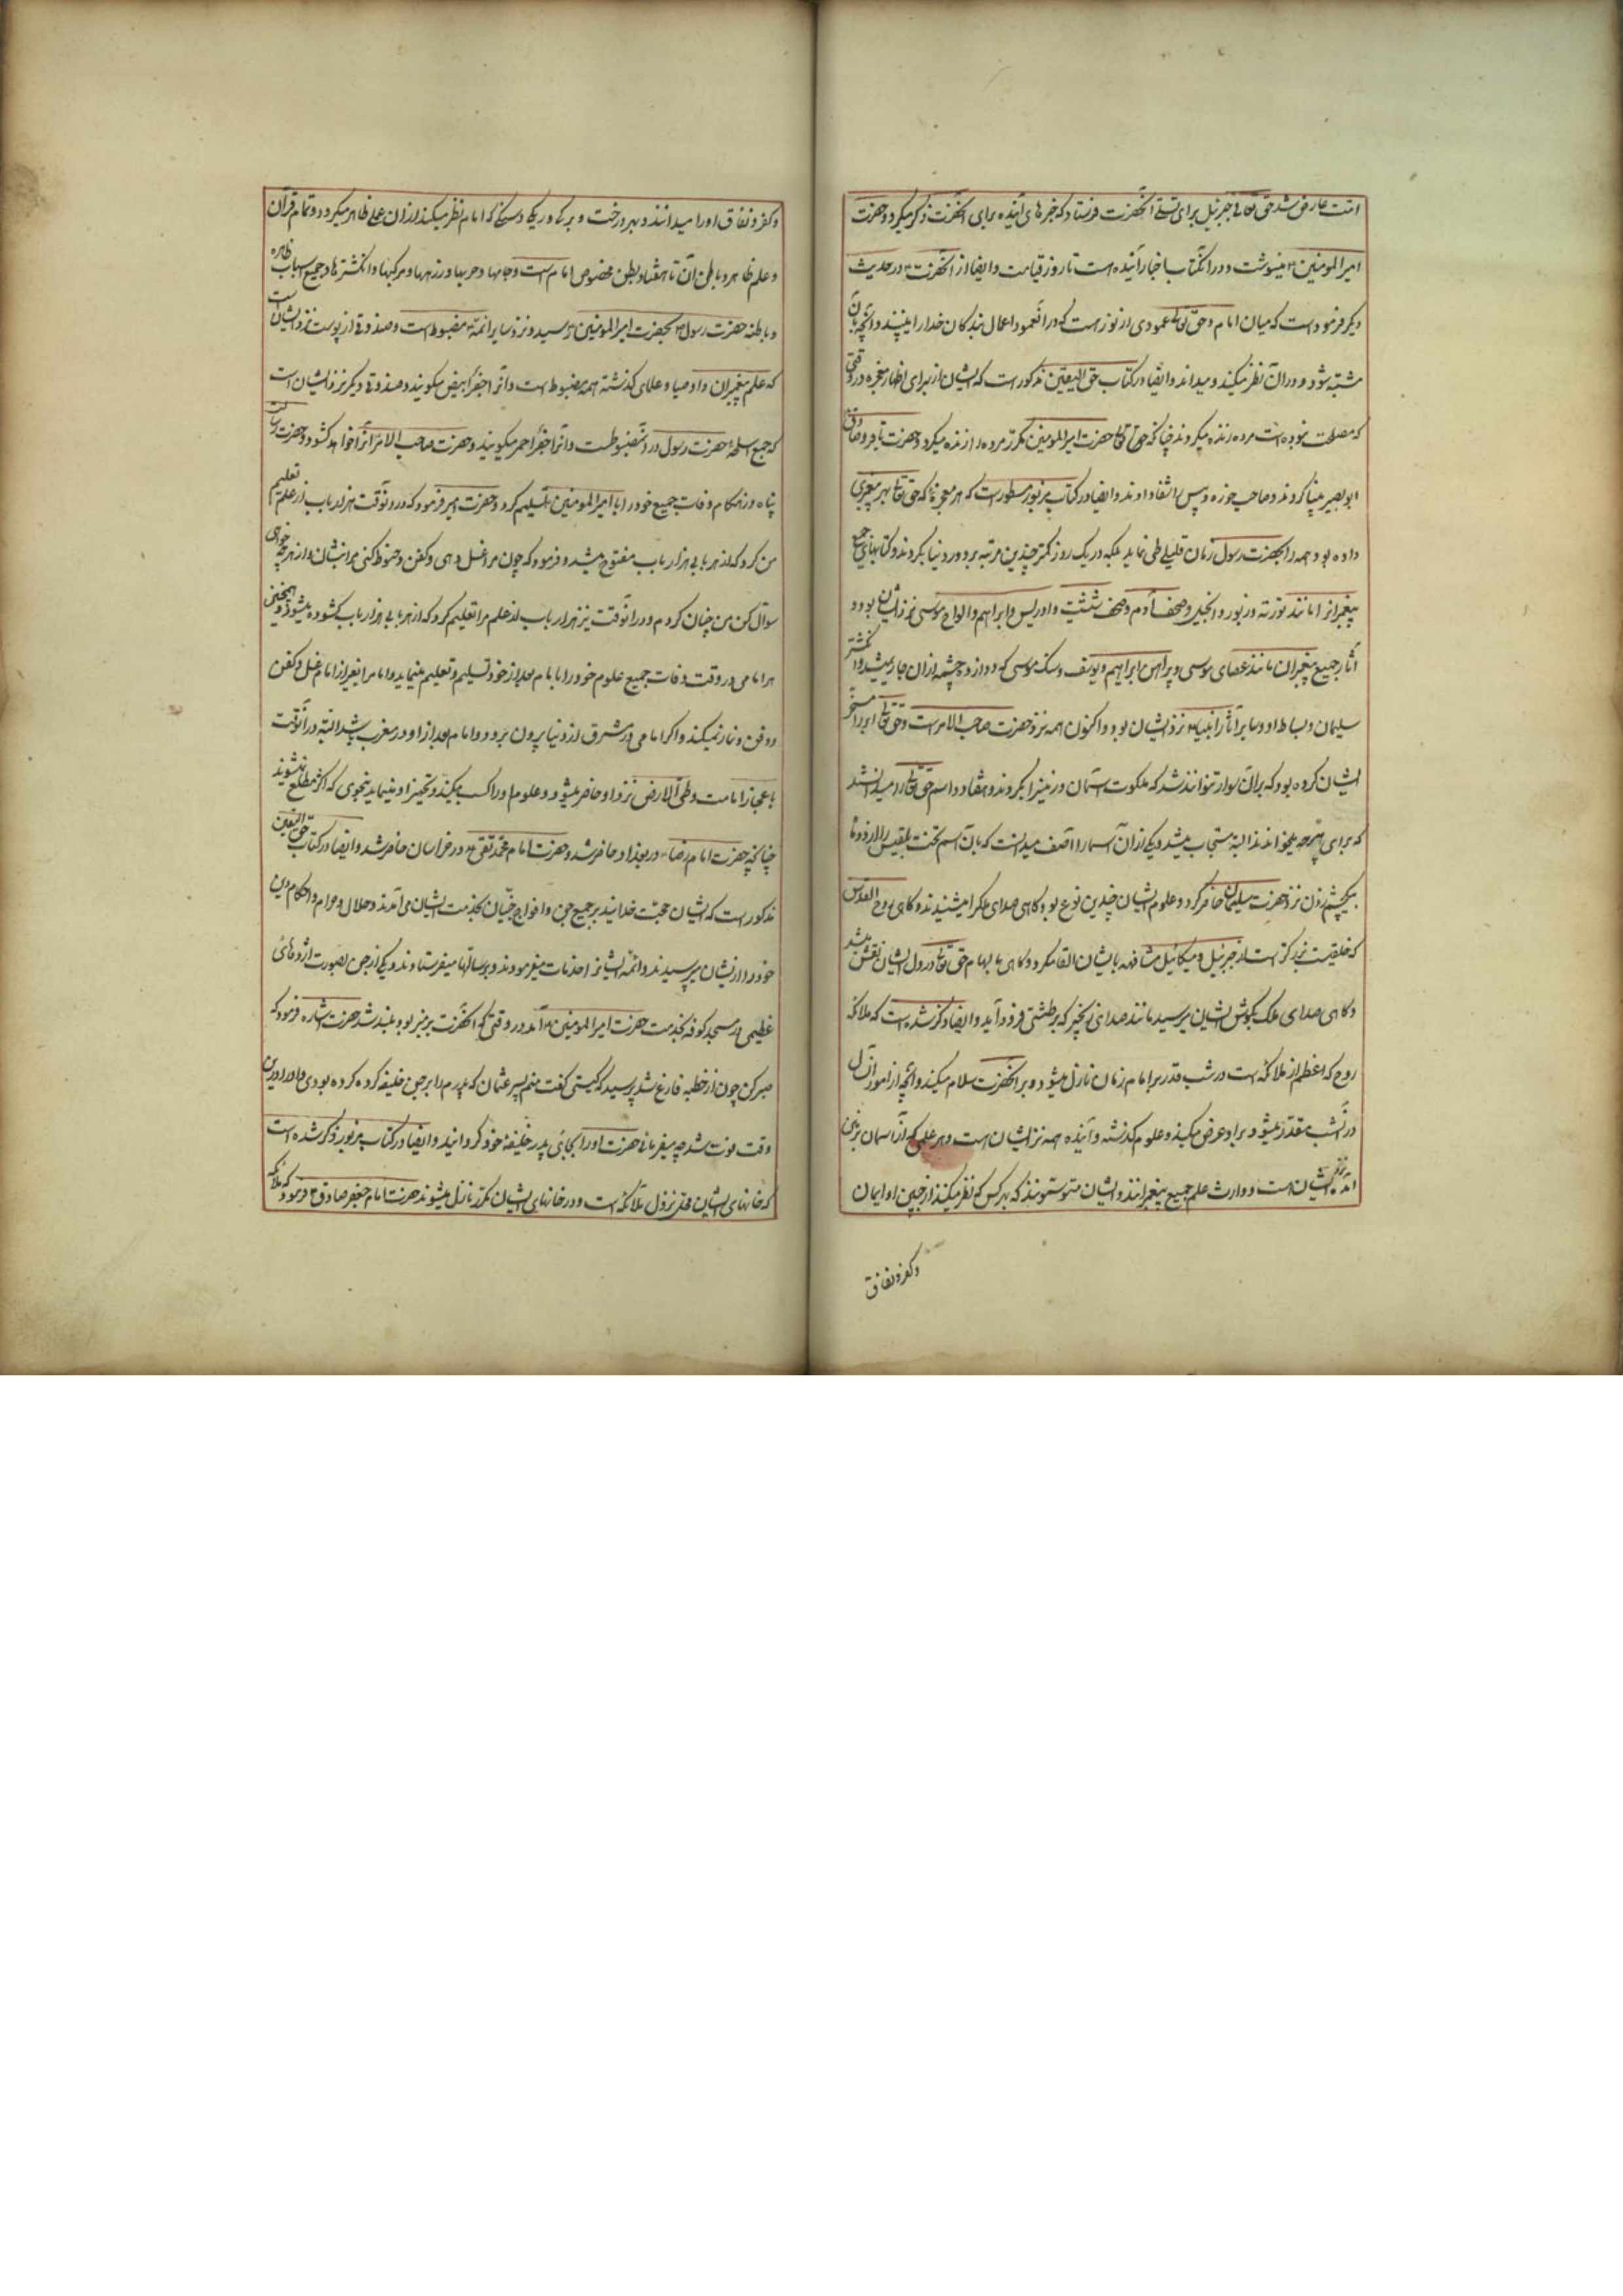 امت عارض شد حق تعالی جبرئیل برای تسلی آنحضرت فرستاد که خبرهای آینده برای آنحضرت ذکر میکرد و حضرت
امیرالمومنین ع مینوشت و در آنکتاب اخبار آینده است تا روز قیامت و ایضا از آنحضرت ع در حدیث
دیگر فرموده است که میان امام و حق تعالی عمودی از نور هست که در آنعمود اعمال بندکان خدا را میبینند و آنچه بر آن
مشتبه شود در آن نظر میکند و میداند و ایضا در کتاب حق الیقین مذکور است که ایشان از برای اظهار معجزه در وقتی
که مصلحت بوده است مرده زنده میکردند چنانکه حق تعالی حضرت امیرالمومنین مکرر مرده را زنده میکرد و حضرت باقر و صادق
ابو بصیر بینا کردند و صاحب خوره و پیس را شفا دادند و ایضا در کتاب مزبور مسطور است که هر معجزه که حق تعالی بهر پیغمبری
داده بود همه را بحضرت رسول زمان قلیلی طی نماید بلکه در یک روز کمتر چندین مرتبه بر دور دنیا بکردند و کتابهای جمیع
پیغمبرانرا مانند توریة و زبور و انجیل و صحف آدم و صحف شیث و ادریس و ابراهیم و الواح موسی نزد ایشان بود و
آثار جمیع پیغمبران مانند عصای موسی و پیراهن ابراهیم و یوسف و سنک موسی که دوازده چشمه از آن جاری میشد و انکشتر
سلیمان و بساط او و سایر آثار انبیا نزد ایشان بود و اکنون همه نزد حضرت صاحب الامر است و حق تعالی ابر را مسخر
ایشان کرده بود که بر آن سوار توانند شد که ملکوت آسمان و زمین را بکردند و هفتاد و دو اسم حق تعالی را میدانستند
که برای هر چه میخواندند البته مستجاب میشد و یکی از آن اسما را آصف میدانست که بآن اسم تخت بلقیس را از دو ماه
بیکچشم زدن نزد حضرت سلیمان حاضر کرد و علوم ایشان چندین نوع بود کاهی صدای ملک را میشنیدند و کاهی روح القدس
که خلقیست بزرکتر است از جبرئیل و میکائیل مشافهه بایشان القا میکرد و کاهی بالهام حق تعالی در دل ایشان نقش میشد
و کاهی صدای ملک بکوش ایشان میرسید مانند صدای زنجیر که بر طشتی فرود آید و ایضا ذکر شده است که ملائکه
روح که اعظم از ملائکه است در شب قدر بر امام زمان نازل میشود و بر آنحضرت سلام میکنند و آنچه از امور آن سال
در آنشب مقدر میشود بر او عرض میکنند و علوم کذشته و آینده همه نزد ایشان است و هر علمی که از آسمان بزمین
آمده نزد ایشان است و وارث علم جمیع پیغمبرانند و ایشان متوسمونند که بهر کس که نظر میکنند از جبین او ایمان
و کفر و نفاق
و کفر و نفاق او را میدانند و بهر درخت و برک و ریک و سنکی که امام نظر میکند از آن علمی ظاهر میکردد و تمام قرآن
و علم ظاهر و باطن آن تا هفتاد بطن مخصوص امام است و جامها و حربها و زرهها و مرکبها و انکشترها و جمیع اسباب ظاهره
و باطنه حضرت رسول ص بحضرت امیرالمومنین ع رسید و نزد سایر ائمه ع مضبوط است و صندوقی از پوست نزد ایشان است
که علم پیغمبران و اوصیا و علمای کذشته همه مضبوط است و آنرا جفر ابیض میکویند و صندوقی دیکر نزد ایشان است
که جمیع اسلحهٔ حضرت رسول در آن مضبوطست و آنرا جفر احمر میکویند و حضرت صاحب الامر آنرا خواهد کشود و حضرت رسالت
پناه در هنکام وفات جمیع خود را با امیرالمومنین تسلیم کرد و حضرت امیر فرمود که در آنوقت هزار باب از علم تعلیم
من کرد که از هر بابی هزار باب مفتوح میشد و فرمود که چون مرا غسل دهی و کفن و حنوط کنی مرا بنشان و از هر چه خواهی
سؤال کن من چنان کردم و در آنوقت نیز هزار باب از علم مرا تعلیم کرد که از هر بابی هزار باب کشوده میشود و همچنین
هر امامی در وقت وفات جمیع علوم خود را بامام بعد از خود تسلیم و تعلیم مینماید و امام را بغیر از امام غسل و کفن
و دفن و نماز نمیکند و اکر امامی در مشرق از دنیا بیرون برود و امام بعد از او در مغرب باشد البته در آنوقت
باعجاز امامت و طی الارض نزد او حاضر میشود و علوم او را کسب میکند و تجهیز او مینماید بنحوی که اکثر مطلع نشوند
چنانچه حضرت امام رضا ع در بغداد حاضر شد و حضرت امام محمد تقی ع در خراسان حاضر شد و ایضا در کتاب حق الیقین
مذکور است که ایشان حجت خدایند بر جمیع جن و افواج جنیان بخدمت ایشان می آمدند و حلال و حرام و احکام دین
خود را از ایشان میپرسیدند و ائمه ایشانرا خدمات میفرمودند و برسالتها میفرستادند و یکی از جن بصورت اژدهای
عظیمی در مسجد کوفه بخدمت حضرت امیرالمومنین ع آمد در وقتی که آنحضرت بر منبر بود بلند شد حضرت اشاره فرمود که
صبر کن چون از خطبه فارغ شد پرسید که کیستی کفت منم پسر عثمان که پدرم را بر جن خلیفه کرده بودی و او را در این
وقت فوت شد چه میفرمائی حضرت او را بجای پدر خلیفهٔ خود کردانید و ایضا در کتاب مزبور ذکر شده است
که خانهای ایشان محل نزول ملائکه است و در خانهای ایشان مکرر نازل میشوند حضرت امام جعفر صادق ع فرمود که ملائکه